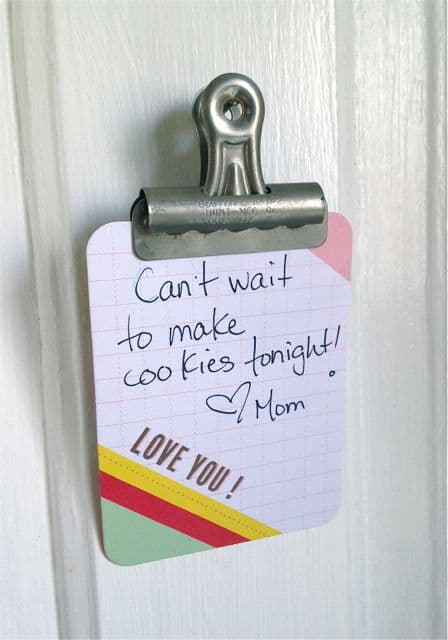 HUNT MFG. CO.
Can't wait
to make
cookies tonight!
♡ Mom
LOVE YOU!